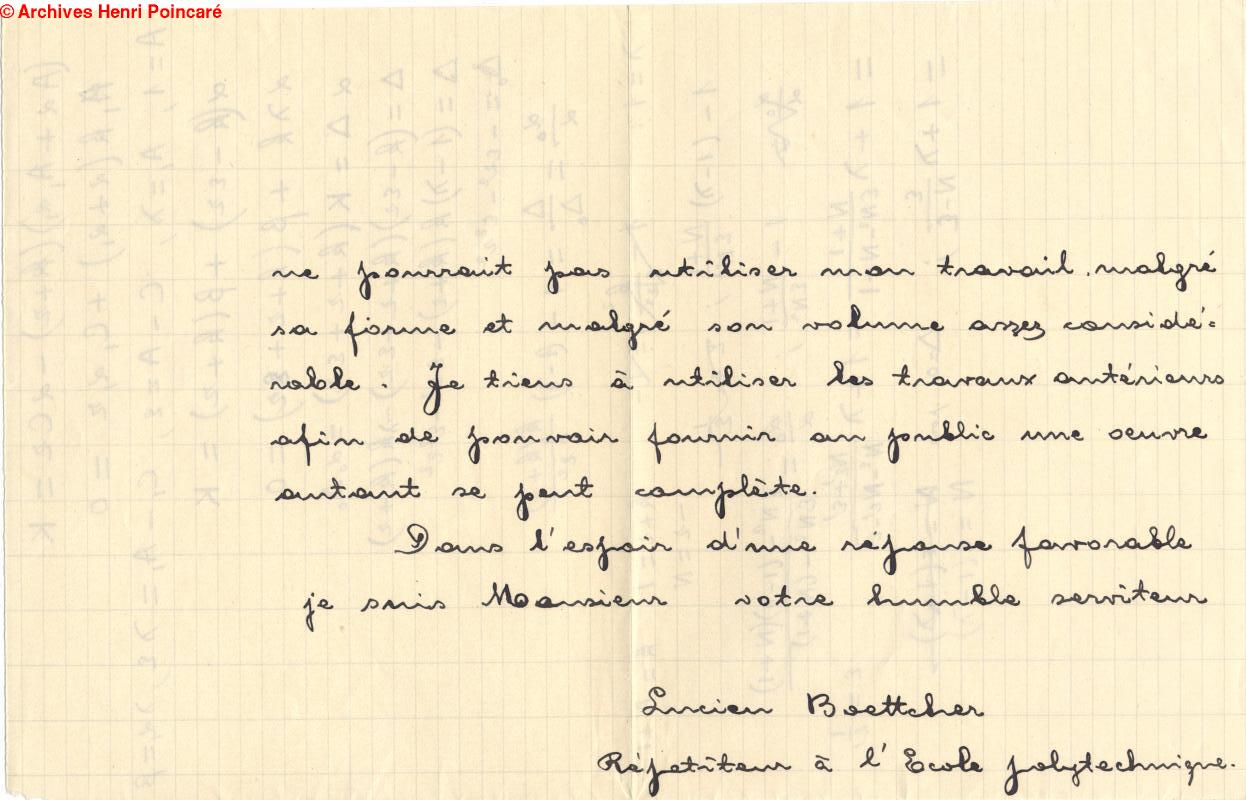 © Archives Henri Poincaré
ne pourrait pas utiliser mon travail, malgré
sa forme et malgré son volume assez considé-
rable. Je tiens à utiliser les travaux antérieurs
afin de pouvoir fournir au public une oeuvre
autant se peut complète.
Dans l'espoir d'une réponse favorable
je suis Monsieur votre humble serviteur
Lucien Boettcher
Répétiteur à l'Ecole polytechnique.